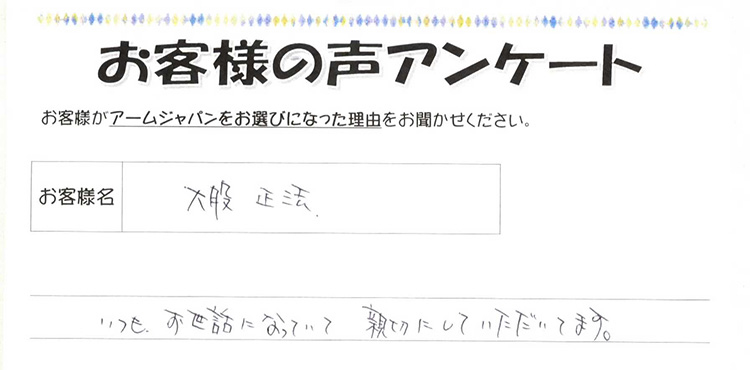 お客様の声アンケート
お客様がアームジャパンをお選びになった理由をお聞かせください。
お客様名 大股 正法
いつも、お世話になっていて 親切にしていただいてます。